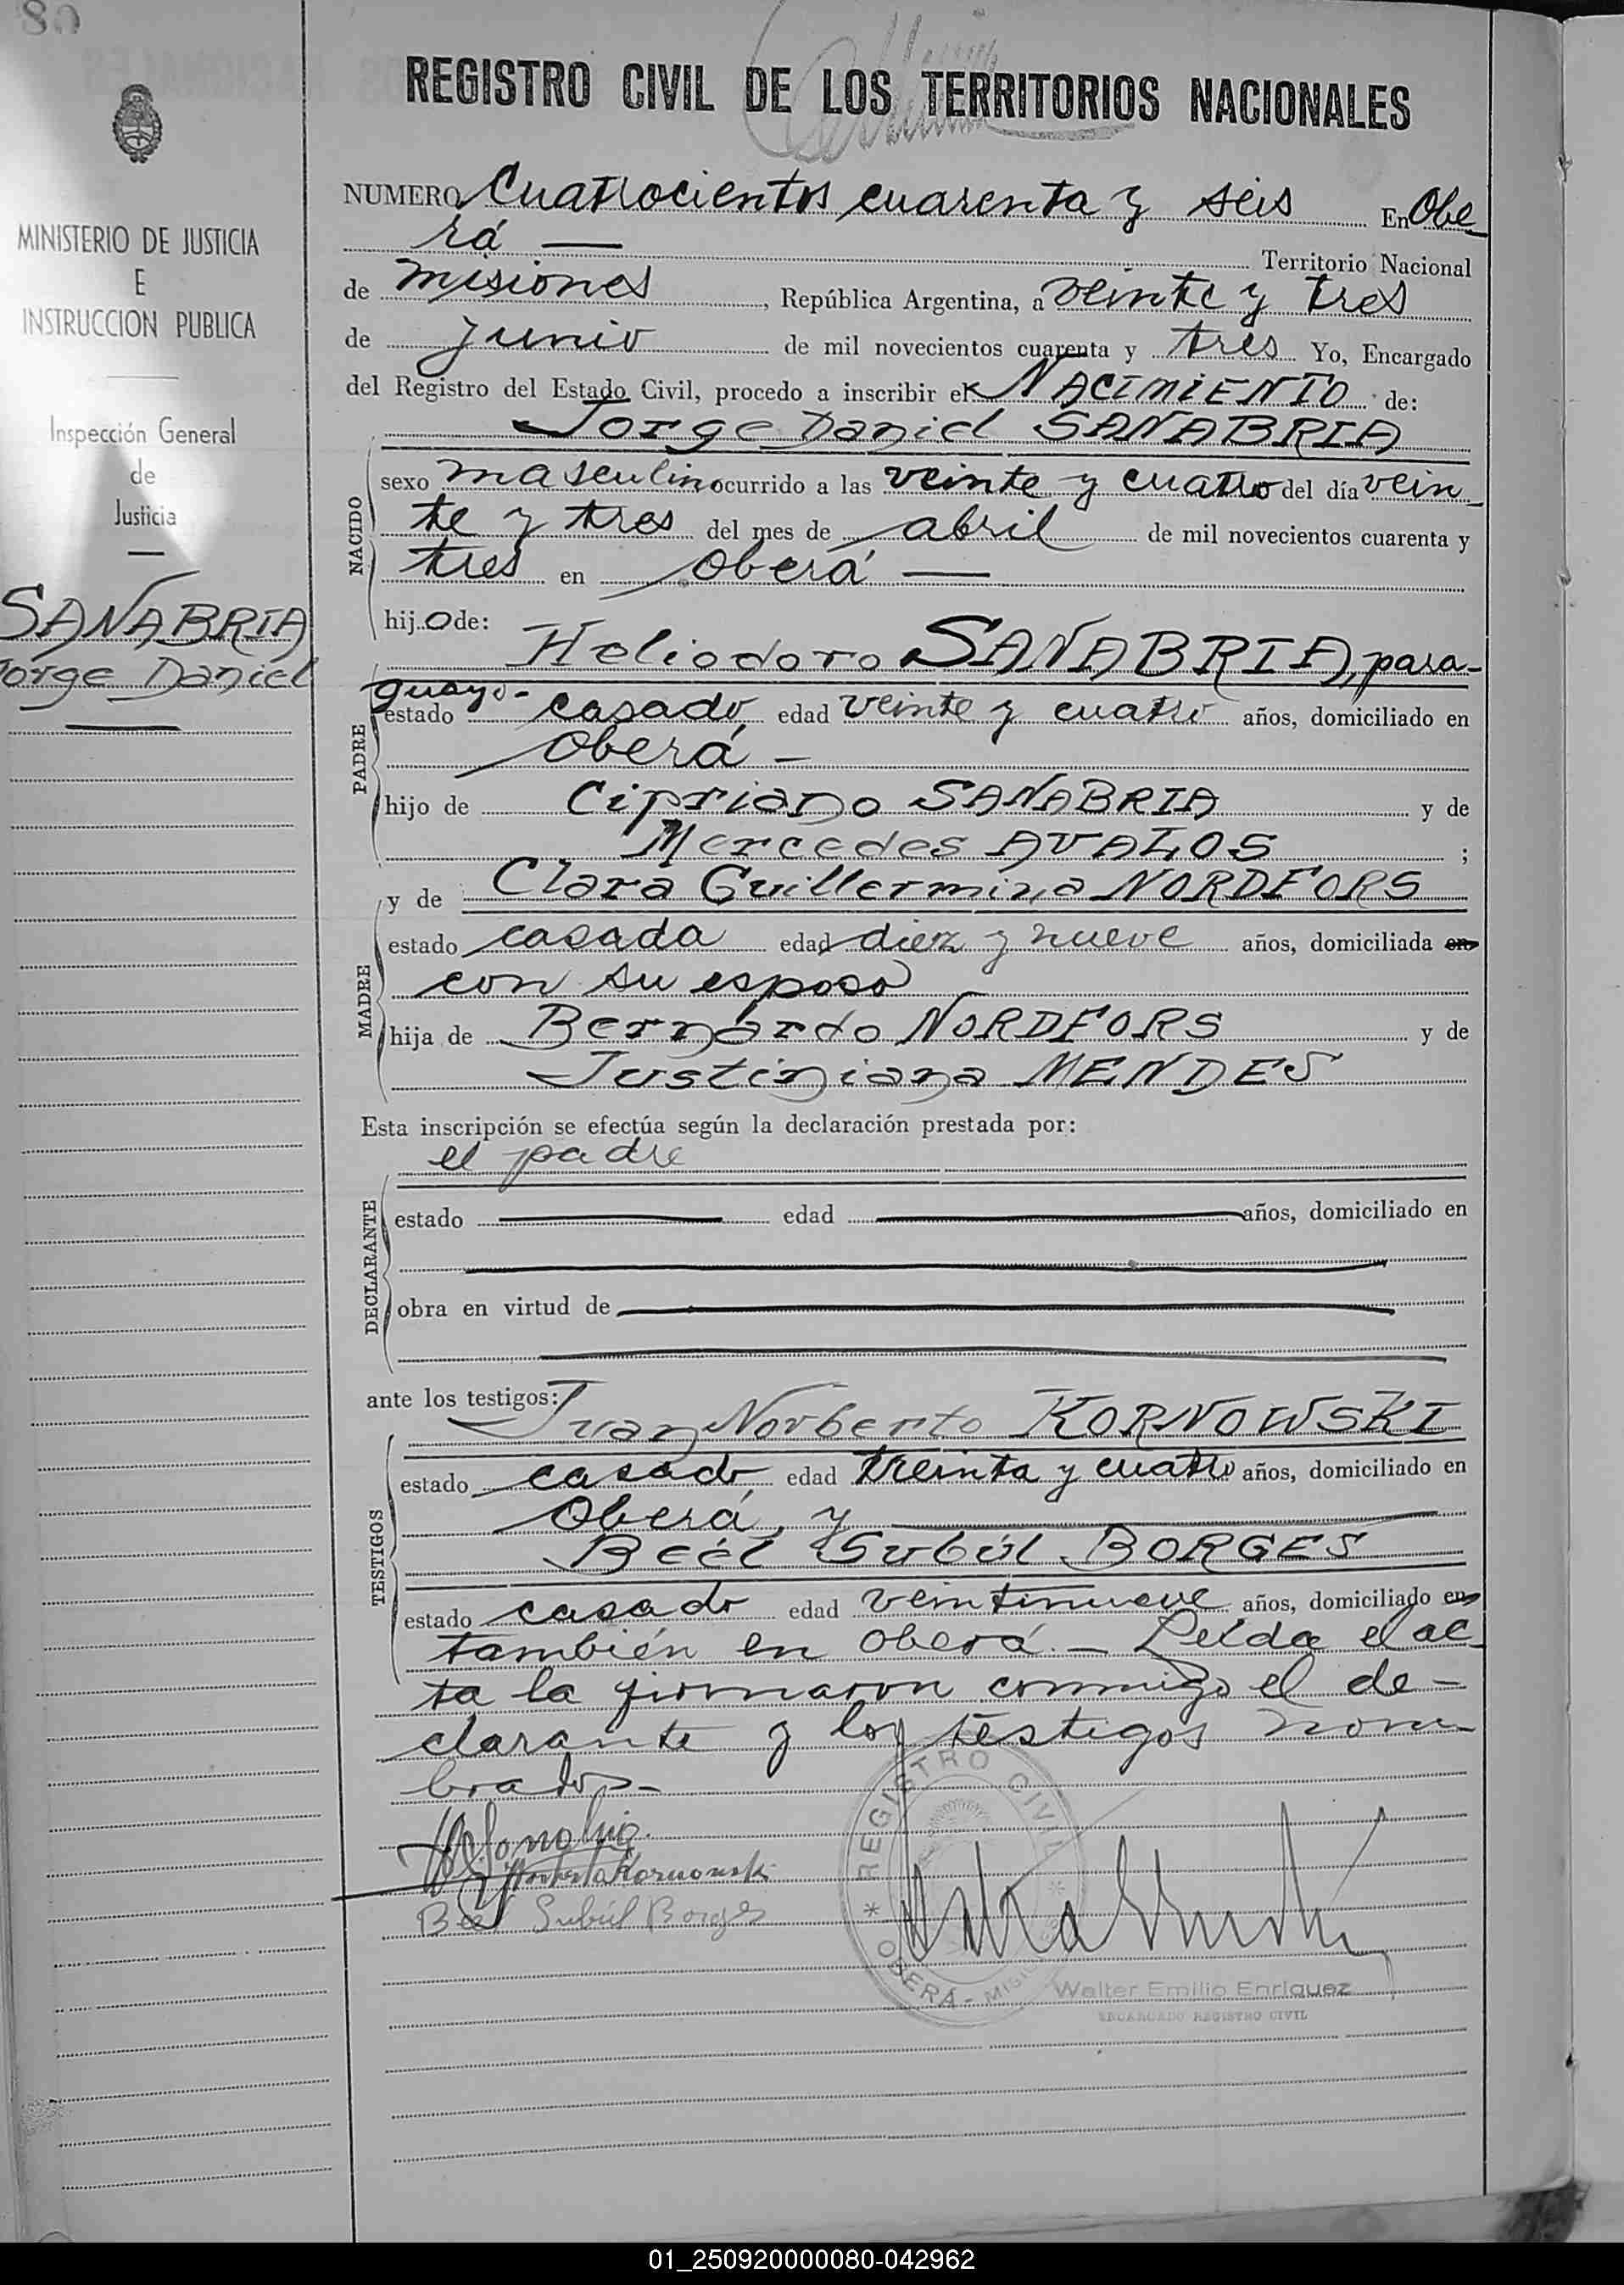 80
REGISTRO CIVIL DE LOS TERRITORIOS NACIONALES
MINISTERIO DE JUSTICIA
E
INSTRUCCION PUBLICA
Inspección General
de
Justicia
SANABRIA
Jorge Daniel
NUMERO Cuatrocientos cuarenta y seis En Obe
rá — Territorio Nacional
de misiones, República Argentina, a veinte y tres
de junio de mil novecientos cuarenta y tres Yo, Encargado
del Registro del Estado Civil, procedo a inscribir el NACIMIENTO de:
Jorge Daniel SANABRIA
NACIDO
sexo masculino ocurrido a las veinte y cuatro del día vein
te y tres del mes de abril de mil novecientos cuarenta y
tres en oberá —
hijo de:
Heliodoro SANABRIA, para-
guayo-
PADRE
estado casado, edad veinte y cuatro años, domiciliado en
oberá -
hijo de Cipriano SANABRIA y de
Mercedes AVALOS ;
y de Clara Guillermina NORDFORS
MADRE
estado casada edad diez y nueve años, domiciliada en
con su esposo
hija de Bernardo NORDFORS y de
Justiniana MENDES
Esta inscripción se efectúa según la declaración prestada por:
el padre
DECLARANTE
estado edad años, domiciliado en
obra en virtud de
ante los testigos:
Juan Norberto KORNOWSKI
TESTIGOS
estado casado, edad treinta y cuatro años, domiciliado en
Oberá, y
Beél Subúl BORGES
estado casado edad veintinueve años, domiciliado en
también en oberá. - Leída el ac-
ta la firmaron conmigo el de-
clarante y los testigos nom-
brados-
HSanabria.
JNorbertoKornowski
Beel Subúl Borges
REGISTRO CIVIL
OBERÁ - MISIONES
Walter Emilio Enriquez
ENCARGADO REGISTRO CIVIL
01_250920000080-042962